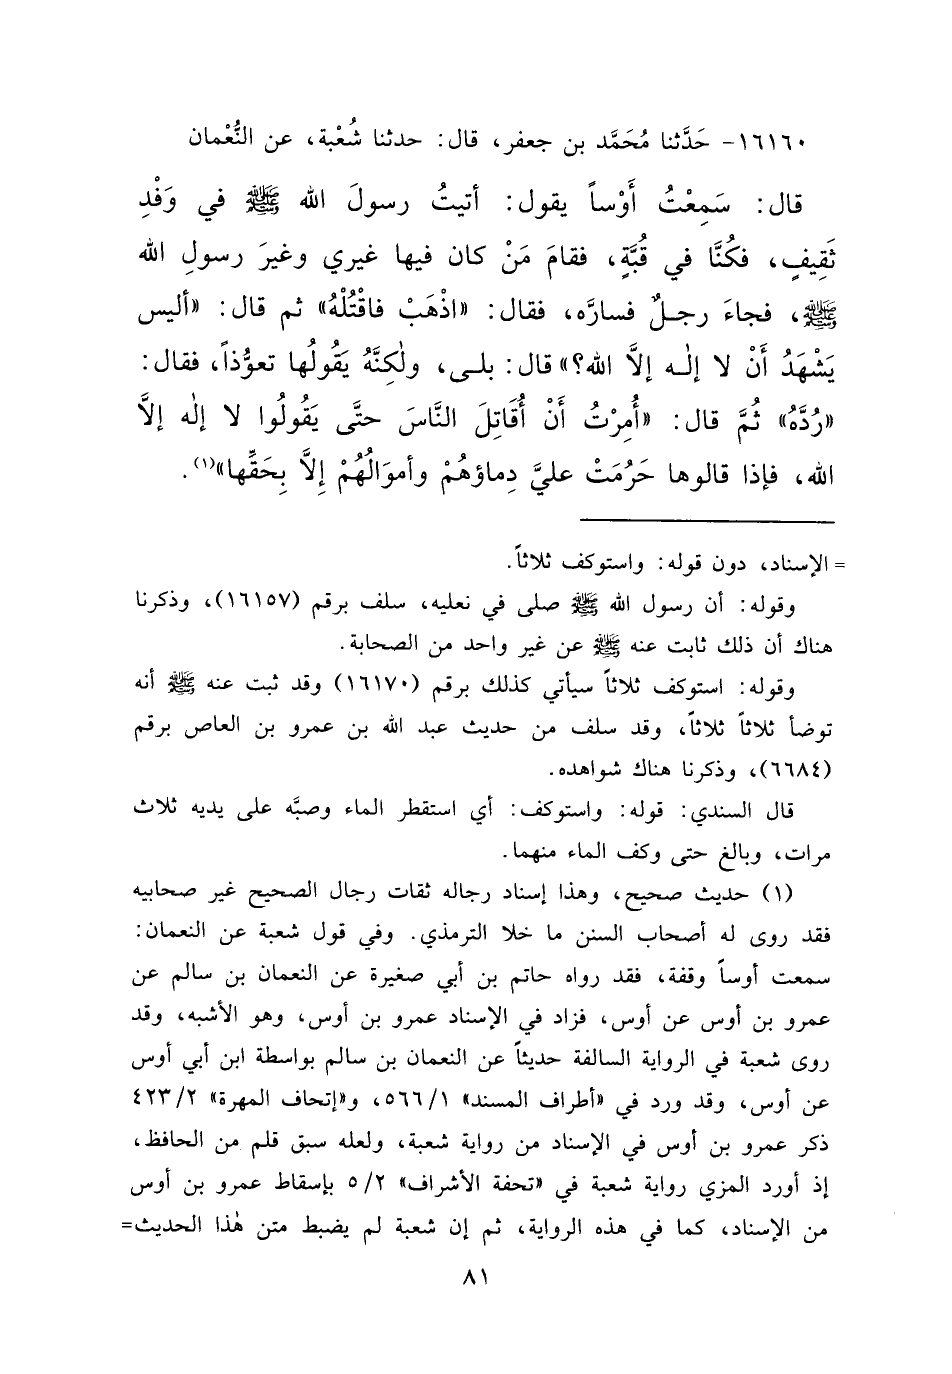 ١٦١٦٠- حَدَّثنا مُحَمَّد بن جعفر، قال: حدثنا شُعْبة، عن النُّعْمان
قال: سَمِعْتُ أَوْساً يقول: أتيتُ رسولَ الله ﷺ في وَفْدِ
ثَقِيفٍ، فكُنَّا في قُبَّةٍ، فقامَ مَنْ كان فيها غيري وغيرَ رسولِ الله
ﷺ، فجاءَ رجلٌ فسارَّه، فقال: «اذْهَبْ فاقْتُلْهُ» ثم قال: «أليس
يَشْهَدُ أَنْ لا إلٰه إلاَّ الله؟» قال: بلى، ولٰكِنَّهُ يَقُولُها تعوُّذاً، فقال:
«رُدَّهُ» ثُمَّ قال: «أُمِرْتُ أَنْ أُقَاتِلَ النَّاسَ حتَّى يَقُولُوا لا إلٰه إلاَّ
الله، فإذا قالوها حَرُمَتْ عليَّ دِماؤهُمْ وأموَالُهُمْ إلاَّ بِحَقِّها»(١).
= الإسناد، دون قوله: واستوكف ثلاثاً.
وقوله: أن رسول الله ﷺ صلى في نعليه، سلف برقم (١٦١٥٧)، وذكرنا
هناك أن ذلك ثابت عنه ﷺ عن غير واحد من الصحابة.
وقوله: استوكف ثلاثاً سيأتي كذلك برقم (١٦١٧٠) وقد ثبت عنه ﷺ أنه
توضأ ثلاثاً ثلاثاً، وقد سلف من حديث عبد الله بن عمرو بن العاص برقم
(٦٦٨٤)، وذكرنا هناك شواهده.
قال السندي: قوله: واستوكف: أي استقطر الماء وصبَّه على يديه ثلاث
مرات، وبالغ حتى وكف الماء منهما.
(١) حديث صحيح، وهذا إسناد رجاله ثقات رجال الصحيح غير صحابيه
فقد روى له أصحاب السنن ما خلا الترمذي. وفي قول شعبة عن النعمان:
سمعت أوساً وقفة، فقد رواه حاتم بن أبي صغيرة عن النعمان بن سالم عن
عمرو بن أوس عن أوس، فزاد في الإسناد عمرو بن أوس، وهو الأشبه، وقد
روى شعبة في الرواية السالفة حديثاً عن النعمان بن سالم بواسطة ابن أبي أوس
عن أوس، وقد ورد في «أطراف المسند» ٥٦٦/١، و«إتحاف المهرة» ٤٢٣/٢
ذكر عمرو بن أوس في الإسناد من رواية شعبة، ولعله سبق قلم من الحافظ،
إذ أورد المزي رواية شعبة في «تحفة الأشراف» ٥/٢ بإسقاط عمرو بن أوس
من الإسناد، كما في هذه الرواية، ثم إن شعبة لم يضبط متن هٰذا الحديث=
٨١